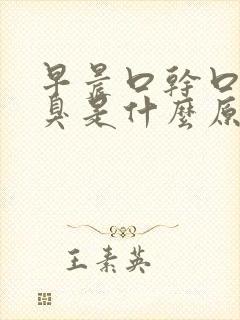 早晨口幹口
臭是什麼原
王素英